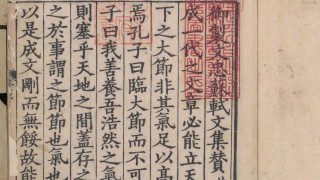 御製文忠蘇軾文集贊
成一代之文章必能立天
下之大節非其氣足以高
焉孔子曰臨大節而不可
子曰我善養吾浩然之氣
則塞乎天地之間蓋存之
之於事謂之節節也氣也
以是成文剛而無餒故能